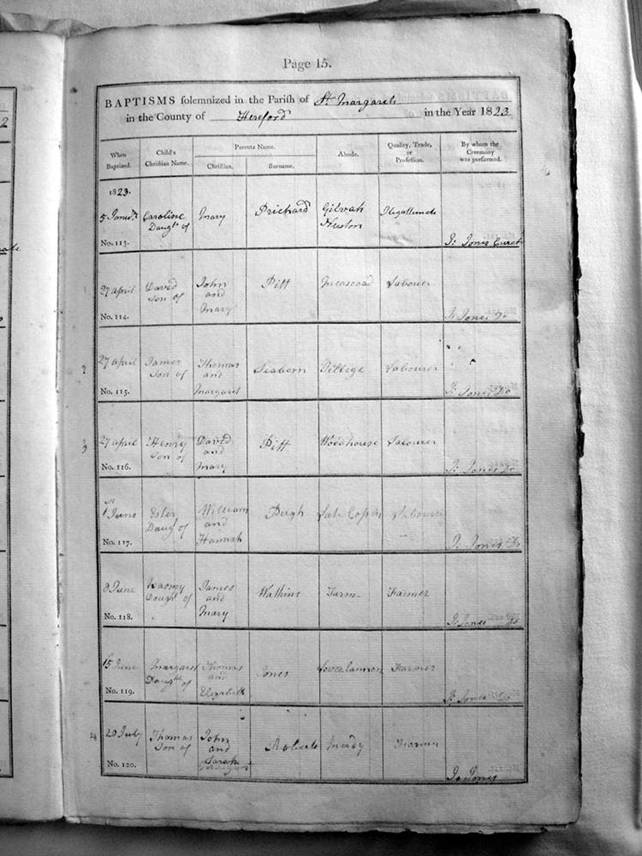 Page 15.
BAPTISMS solemnized in the Parish of St. Margarets
in the County of Hereford in the Year 1823
When Baptized.
Child's Christian Name.
Parents Name.
Christian.
Surname.
Abode.
Quality, Trade, or Profession.
By whom the Ceremony was performed.
1823.
5 Jany. Caroline Mary Prichard Gilvach
Daughtr of
No. 113.
Js. Jones Curate
27 April David John Pitt Labourer
Son of and
Mary
No. 114.
Js. Jones Do
27 April James Thomas Seaborn Labourer
Son of and
No. 115. Margaret
Js. Jones Do
27 April Henry David Pitt Woodhouse Labourer
Son of and
No. 116. Mary
Js. Jones Do
1 June Ester William Pugh Labourer
Daug of and
No. 117. Hannah
Js. Jones Do
8 June James Watkins Farm Farmer
Daught of and
No. 118. Mary
Js. Jones Do
15 June Margaret Thomas Jones Farmer
Daught of and
No. 119. Elizabeth
Js. Jones Do
20 July Thomas John Farmer
Son of and
No. 120. Sarah
Js. Jones